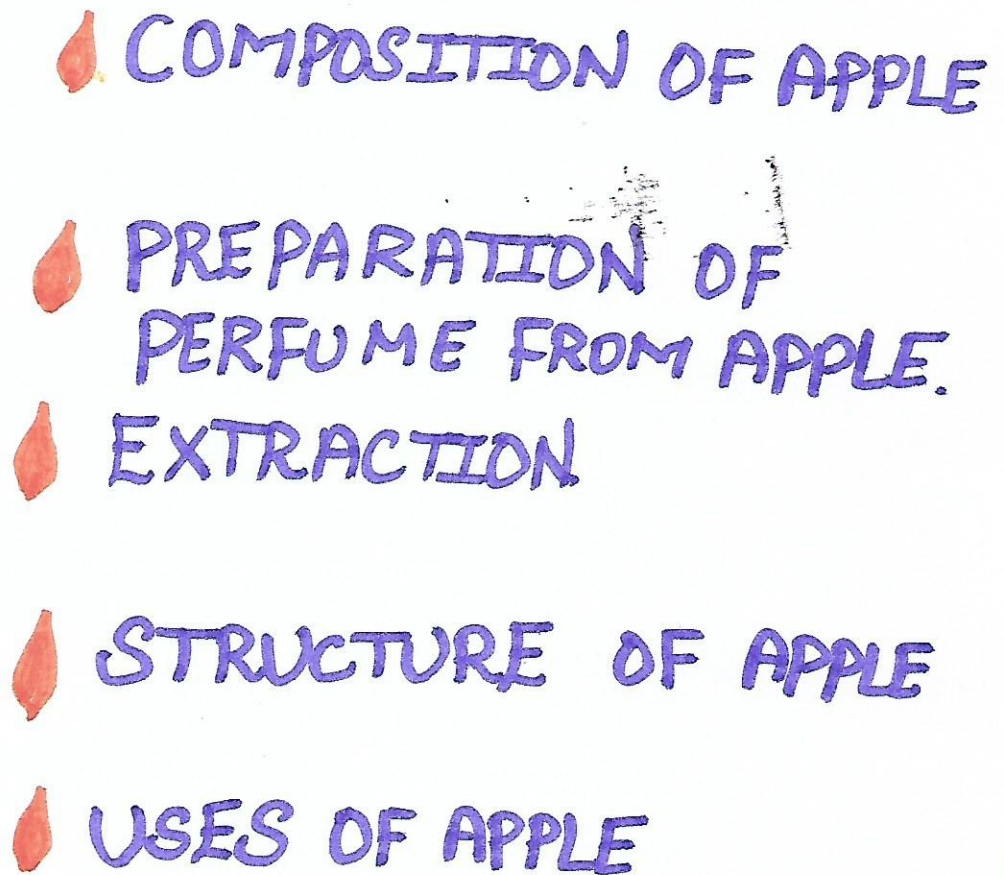 COMPOSITION OF APPLE
PREPARATION OF
PERFUME FROM APPLE.
EXTRACTION
STRUCTURE OF APPLE
USES OF APPLE